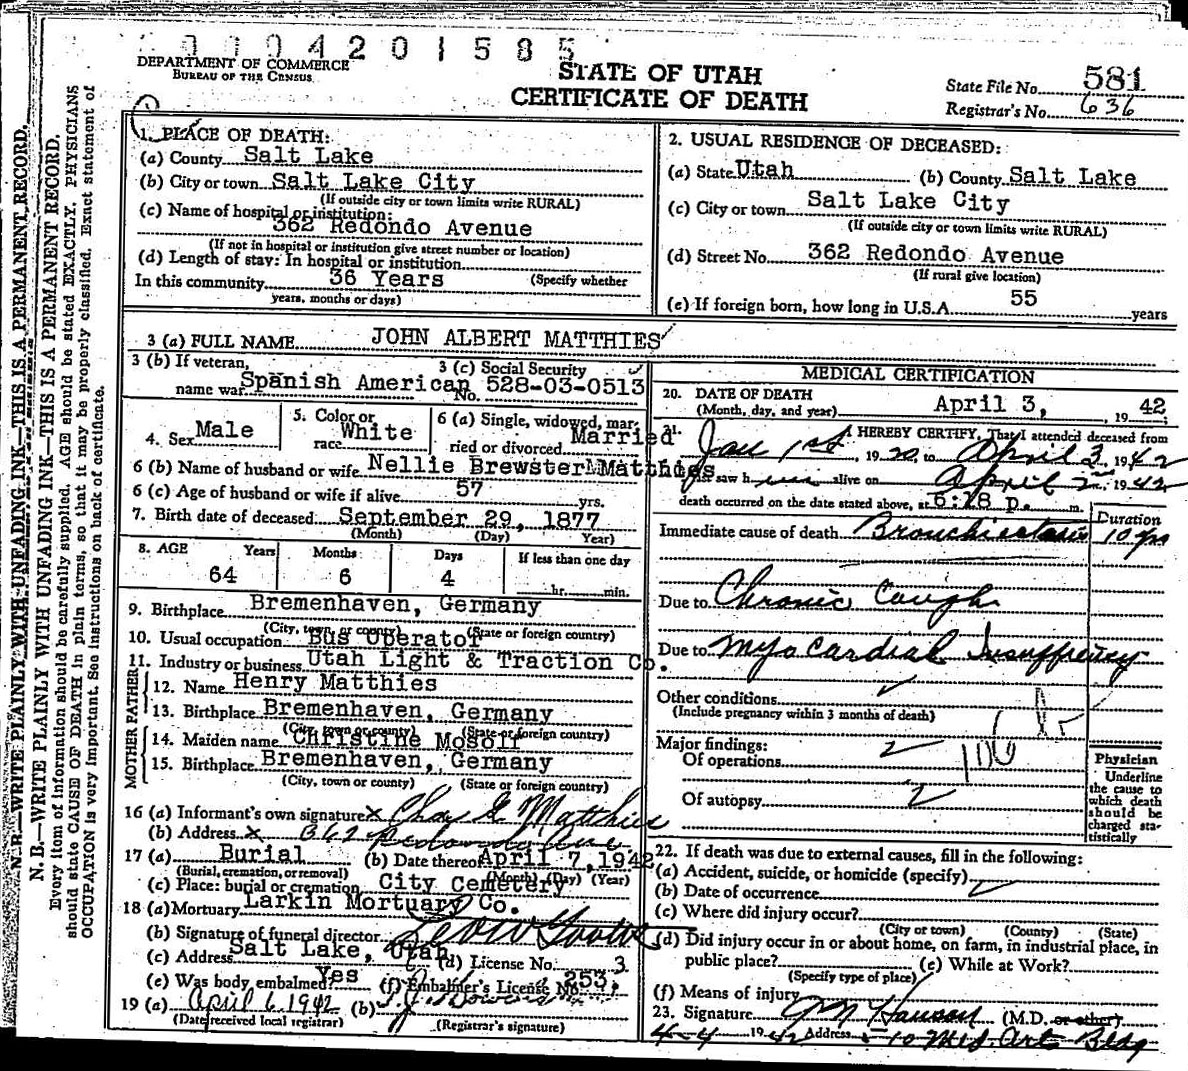 0004201585
DEPARTMENT OF COMMERCE
BUREAU OF THE CENSUS
STATE OF UTAH
CERTIFICATE OF DEATH
State File No. 581
Registrar's No. 636
N. B.—WRITE PLAINLY WITH UNFADING INK—THIS IS A PERMANENT RECORD.
N. B.—WRITE PLAINLY WITH UNFADING INK—THIS IS A PERMANENT RECORD.
Every item of information should be carefully supplied. AGE should be stated EXACTLY. PHYSICIANS
should state CAUSE OF DEATH in plain terms, so that it may be properly classified. Exact statement of
OCCUPATION is very important. See instructions on back of certificate.
1. PLACE OF DEATH:
(a) County Salt Lake
(b) City or town Salt Lake City
(If outside city or town limits write RURAL)
(c) Name of hospital or institution:
362 Redondo Avenue
(If not in hospital or institution give street number or location)
(d) Length of stay: In hospital or institution
In this community 36 Years (Specify whether
years, months or days)
2. USUAL RESIDENCE OF DECEASED:
(a) State Utah (b) County Salt Lake
(c) City or town Salt Lake City
(If outside city or town limits write RURAL)
(d) Street No. 362 Redondo Avenue
(If rural give location)
(e) If foreign born, how long in U.S.A. 55 years
3 (a) FULL NAME JOHN ALBERT MATTHIES
3 (b) If veteran,
name war Spanish American
3 (c) Social Security
No. 528-03-0513
4. Sex Male
5. Color or
race White
6 (a) Single, widowed, mar-
ried or divorced Married
6 (b) Name of husband or wife Nellie Brewster Matthies
6 (c) Age of husband or wife if alive 57 yrs.
7. Birth date of deceased September 29, 1877
(Month) (Day) Year)
8. AGE Years Months Days If less than one day
64 6 4 hr. min.
9. Birthplace Bremenhaven, Germany
(City, town, or county) (State or foreign country)
10. Usual occupation Bus Operator
11. Industry or business Utah Light & Traction Co.
FATHER
12. Name Henry Matthies
13. Birthplace Bremenhaven, Germany
(City, town or county) (State or foreign country)
MOTHER
14. Maiden name Christine Mosoff
15. Birthplace Bremenhaven, Germany
(City, town or county) (State or foreign country)
16 (a) Informant's own signature x Chas G. Matthies
(b) Address x 362 Redondo Ave
17 (a) Burial (b) Date thereof April 7, 1942
(Burial, cremation, or removal) (Month) (Day) (Year)
(c) Place: burial or cremation City Cemetery
18 (a) Mortuary Larkin Mortuary Co.
(b) Signature of funeral director
(c) Address Salt Lake, Utah (d) License No. 3
(e) Was body embalmed? Yes (f) Embalmer's License No. 253,
19 (a) April 6, 1942 (b)
(Date received local registrar) (Registrar's signature)
MEDICAL CERTIFICATION
20. DATE OF DEATH
(Month, day, and year) April 3, 1942
21. I HEREBY CERTIFY, That I attended deceased from
Jan 1st, 1920, to April 3, 1942
I last saw him alive on April 2, 1942
death occurred on the date stated above, at 6:18 p. m.
Immediate cause of death Bronchiectasis
Duration
10 yrs
Due to Chronic Cough
Due to Myocardial Insufficiency
Other conditions
(Include pregnancy within 3 months of death)
106
Major findings:
Of operations
Of autopsy
Physician
Underline
the cause to
which death
should be
charged sta-
tistically
22. If death was due to external causes, fill in the following:
(a) Accident, suicide, or homicide (specify)
(b) Date of occurrence
(c) Where did injury occur?
(City or town) (County) (State)
(d) Did injury occur in or about home, on farm, in industrial place, in
public place? (e) While at Work?
(Specify type of place)
(f) Means of injury
23. Signature Hanson (M.D. or other)
4-4 1942 Address 510 Med Arts Bldg